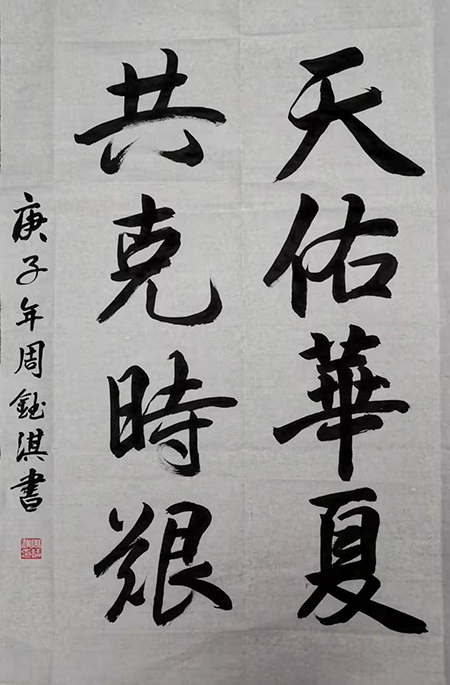 天佑華夏
共克時艱
庚子年周鈺淇書